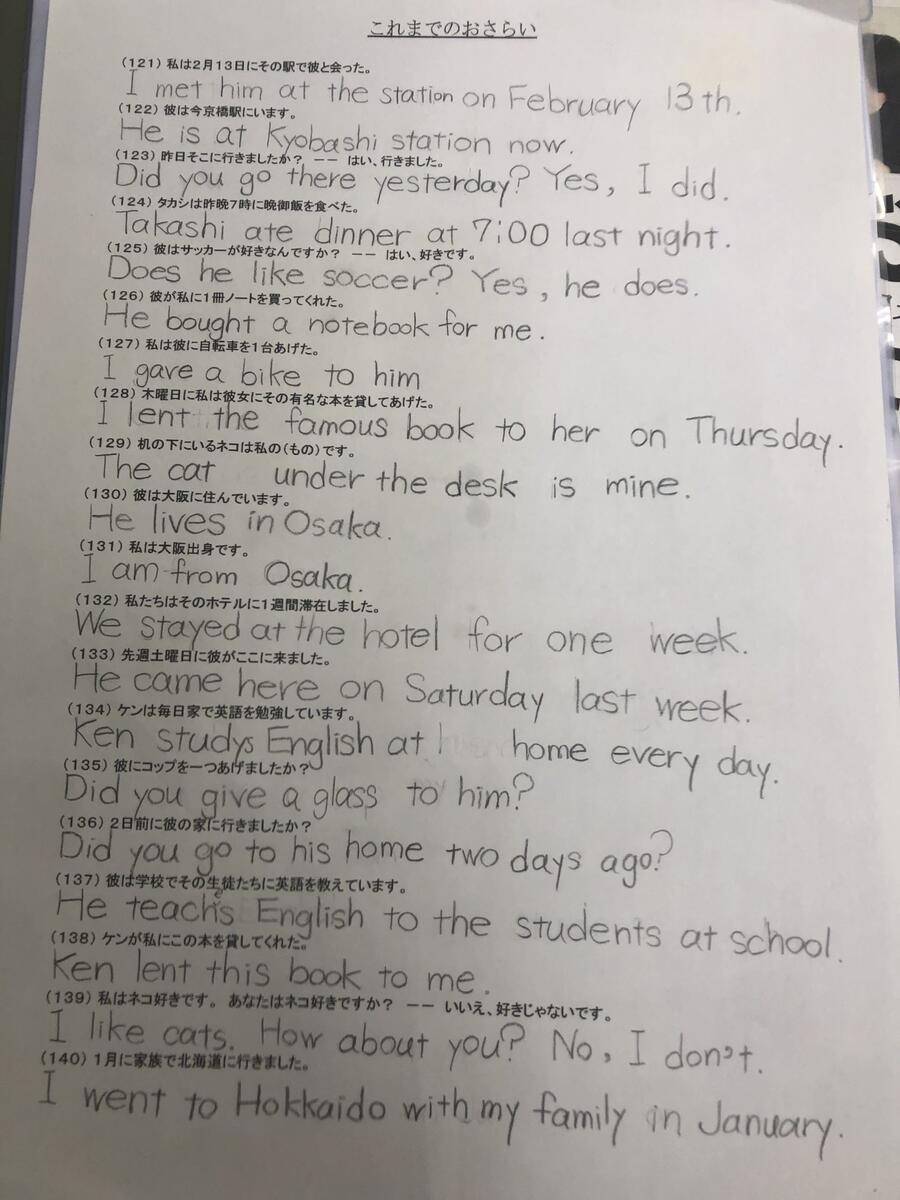 これまでのおさらい
(121) 私は2月13日にその駅で彼と会った。
I met him at the station on February 13th.
(122) 彼は今京橋駅にいます。
He is at Kyobashi station now.
(123) 昨日そこに行きましたか? －－ はい、行きました。
Did you go there yesterday? Yes, I did.
(124) タカシは昨晩7時に晩御飯を食べた。
Takashi ate dinner at 7:00 last night.
(125) 彼はサッカーが好きなんですか? －－ はい、好きです。
Does he like soccer? Yes, he does.
(126) 彼が私に1冊ノートを買ってくれた。
He bought a notebook for me.
(127) 私は彼に自転車を1台あげた。
I gave a bike to him
(128) 木曜日に私は彼女にその有名な本を貸してあげた。
I lent the famous book to her on Thursday.
(129) 机の下にいるネコは私の(もの)です。
The cat under the desk is mine.
(130) 彼は大阪に住んでいます。
He lives in Osaka.
(131) 私は大阪出身です。
I am from Osaka.
(132) 私たちはそのホテルに1週間滞在しました。
We stayed at the hotel for one week.
(133) 先週土曜日に彼がここに来ました。
He came here on Saturday last week.
(134) ケンは毎日家で英語を勉強しています。
Ken studys English at home every day.
(135) 彼にコップを一つあげましたか?
Did you give a glass to him?
(136) 2日前に彼の家に行きましたか?
Did you go to his home two days ago?
(137) 彼は学校でその生徒たちに英語を教えています。
He teaches English to the students at school.
(138) ケンが私にこの本を貸してくれた。
Ken lent this book to me.
(139) 私はネコ好きです。 あなたはネコ好きですか? －－ いいえ、好きじゃないです。
I like cats. How about you? No, I don't.
(140) 1月に家族で北海道に行きました。
I went to Hokkaido with my family in January.